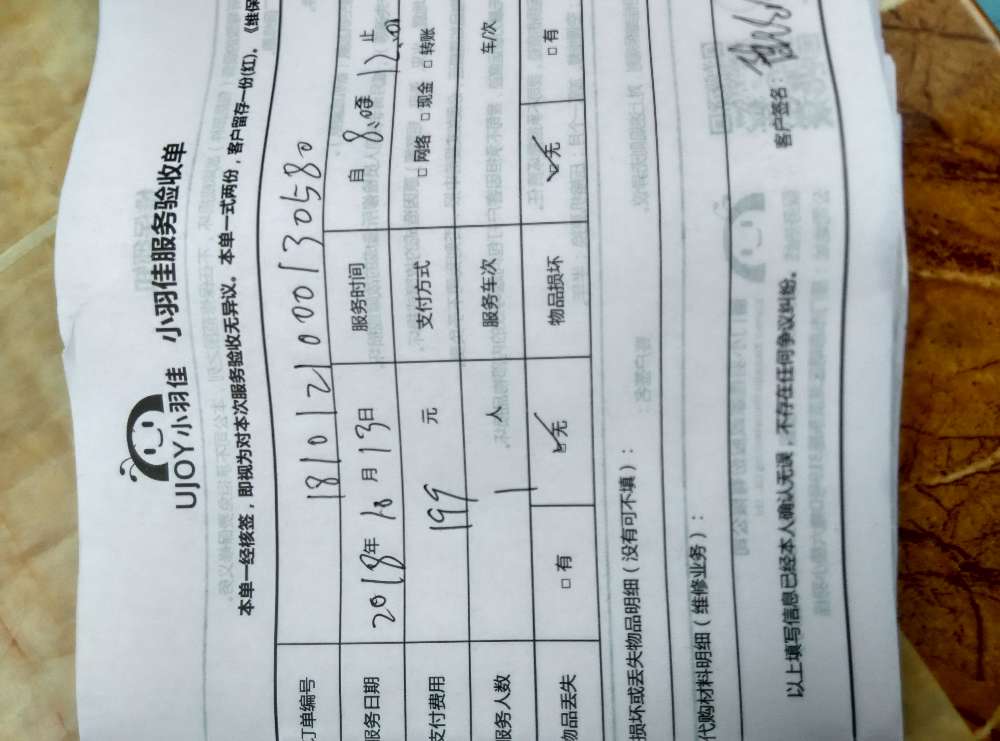 UJOY小羽佳 小羽佳服务验收单
本单一经核签，即视为对本次服务验收无异议。本单一式两份，客户留存一份(红)。《维保
订单编号 181012100013058０
服务日期 2018年10月13日 服务时间 自 8:00 12:00 止
支付费用 199 元 支付方式 □网络 □现金 □转账
服务人数 1 人 服务车次 车/次
物品丢失 □有 ☑无 物品损坏 ☑无 □有
损坏或丢失物品明细（没有可不填）：
代购材料明细（维修业务）：
以上填写信息已经本人确认无误，不存在任何争议纠纷。 客户签名：